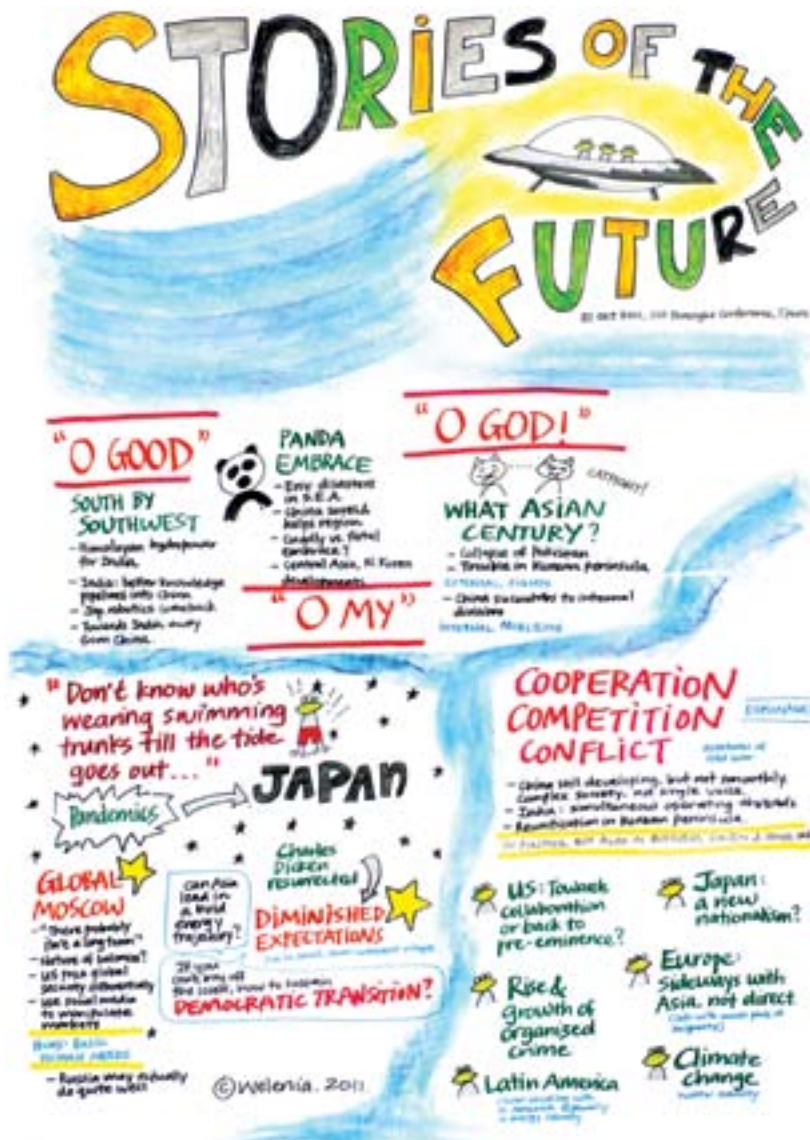 STORIES OF THE
FUTURE
"O GOOD"
SOUTH BY
SOUTHWEST
- Himalayan hydropower
for India
- India: better knowledge
pipelines into China
- Jap robotics comeback
- Towards India, away
from China
PANDA
EMBRACE
- Env disasters
in S.E.A.
- China
helps region
- Cuddly vs fatal
embrace?
- Central Asia, N. Korea
developments
"O MY"
"O GOD!"
CATFIGHT!
WHAT ASIAN
CENTURY?
- Collapse of Pakistan
- Trouble in Korean peninsula
- China succumbs to internal
divisions
INTERNAL PROBLEMS
"Don't know who's
wearing swimming
trunks till the tide
goes out..."
Pandemics
JAPAN
GLOBAL
MOSCOW
- "There probably
isn't a long term"
- Nature of balance?
- US plays global
security differently
- Use social media
to manipulate
markets
BASIC
HUMAN NEEDS
- Russia may actually
do quite well
Can Asia
lead in
a
energy
trajectory?
Charles
Dicken
resurrected
DIMINISHED
EXPECTATIONS
If you
off
how to
DEMOCRATIC TRANSITION?
© Welenia. 2011
COOPERATION
COMPETITION
CONFLICT
- China still developing, but not smoothly.
Complex society, not single voice
- India: simultaneous operating
- Reunification on Korean peninsula
US: Towards
collaboration
or back to
pre-eminence?
Japan:
a new
nationalism?
Rise &
growth of
organised
crime
Europe:
Sideways with
Asia, not direct
Latin America
Climate
change